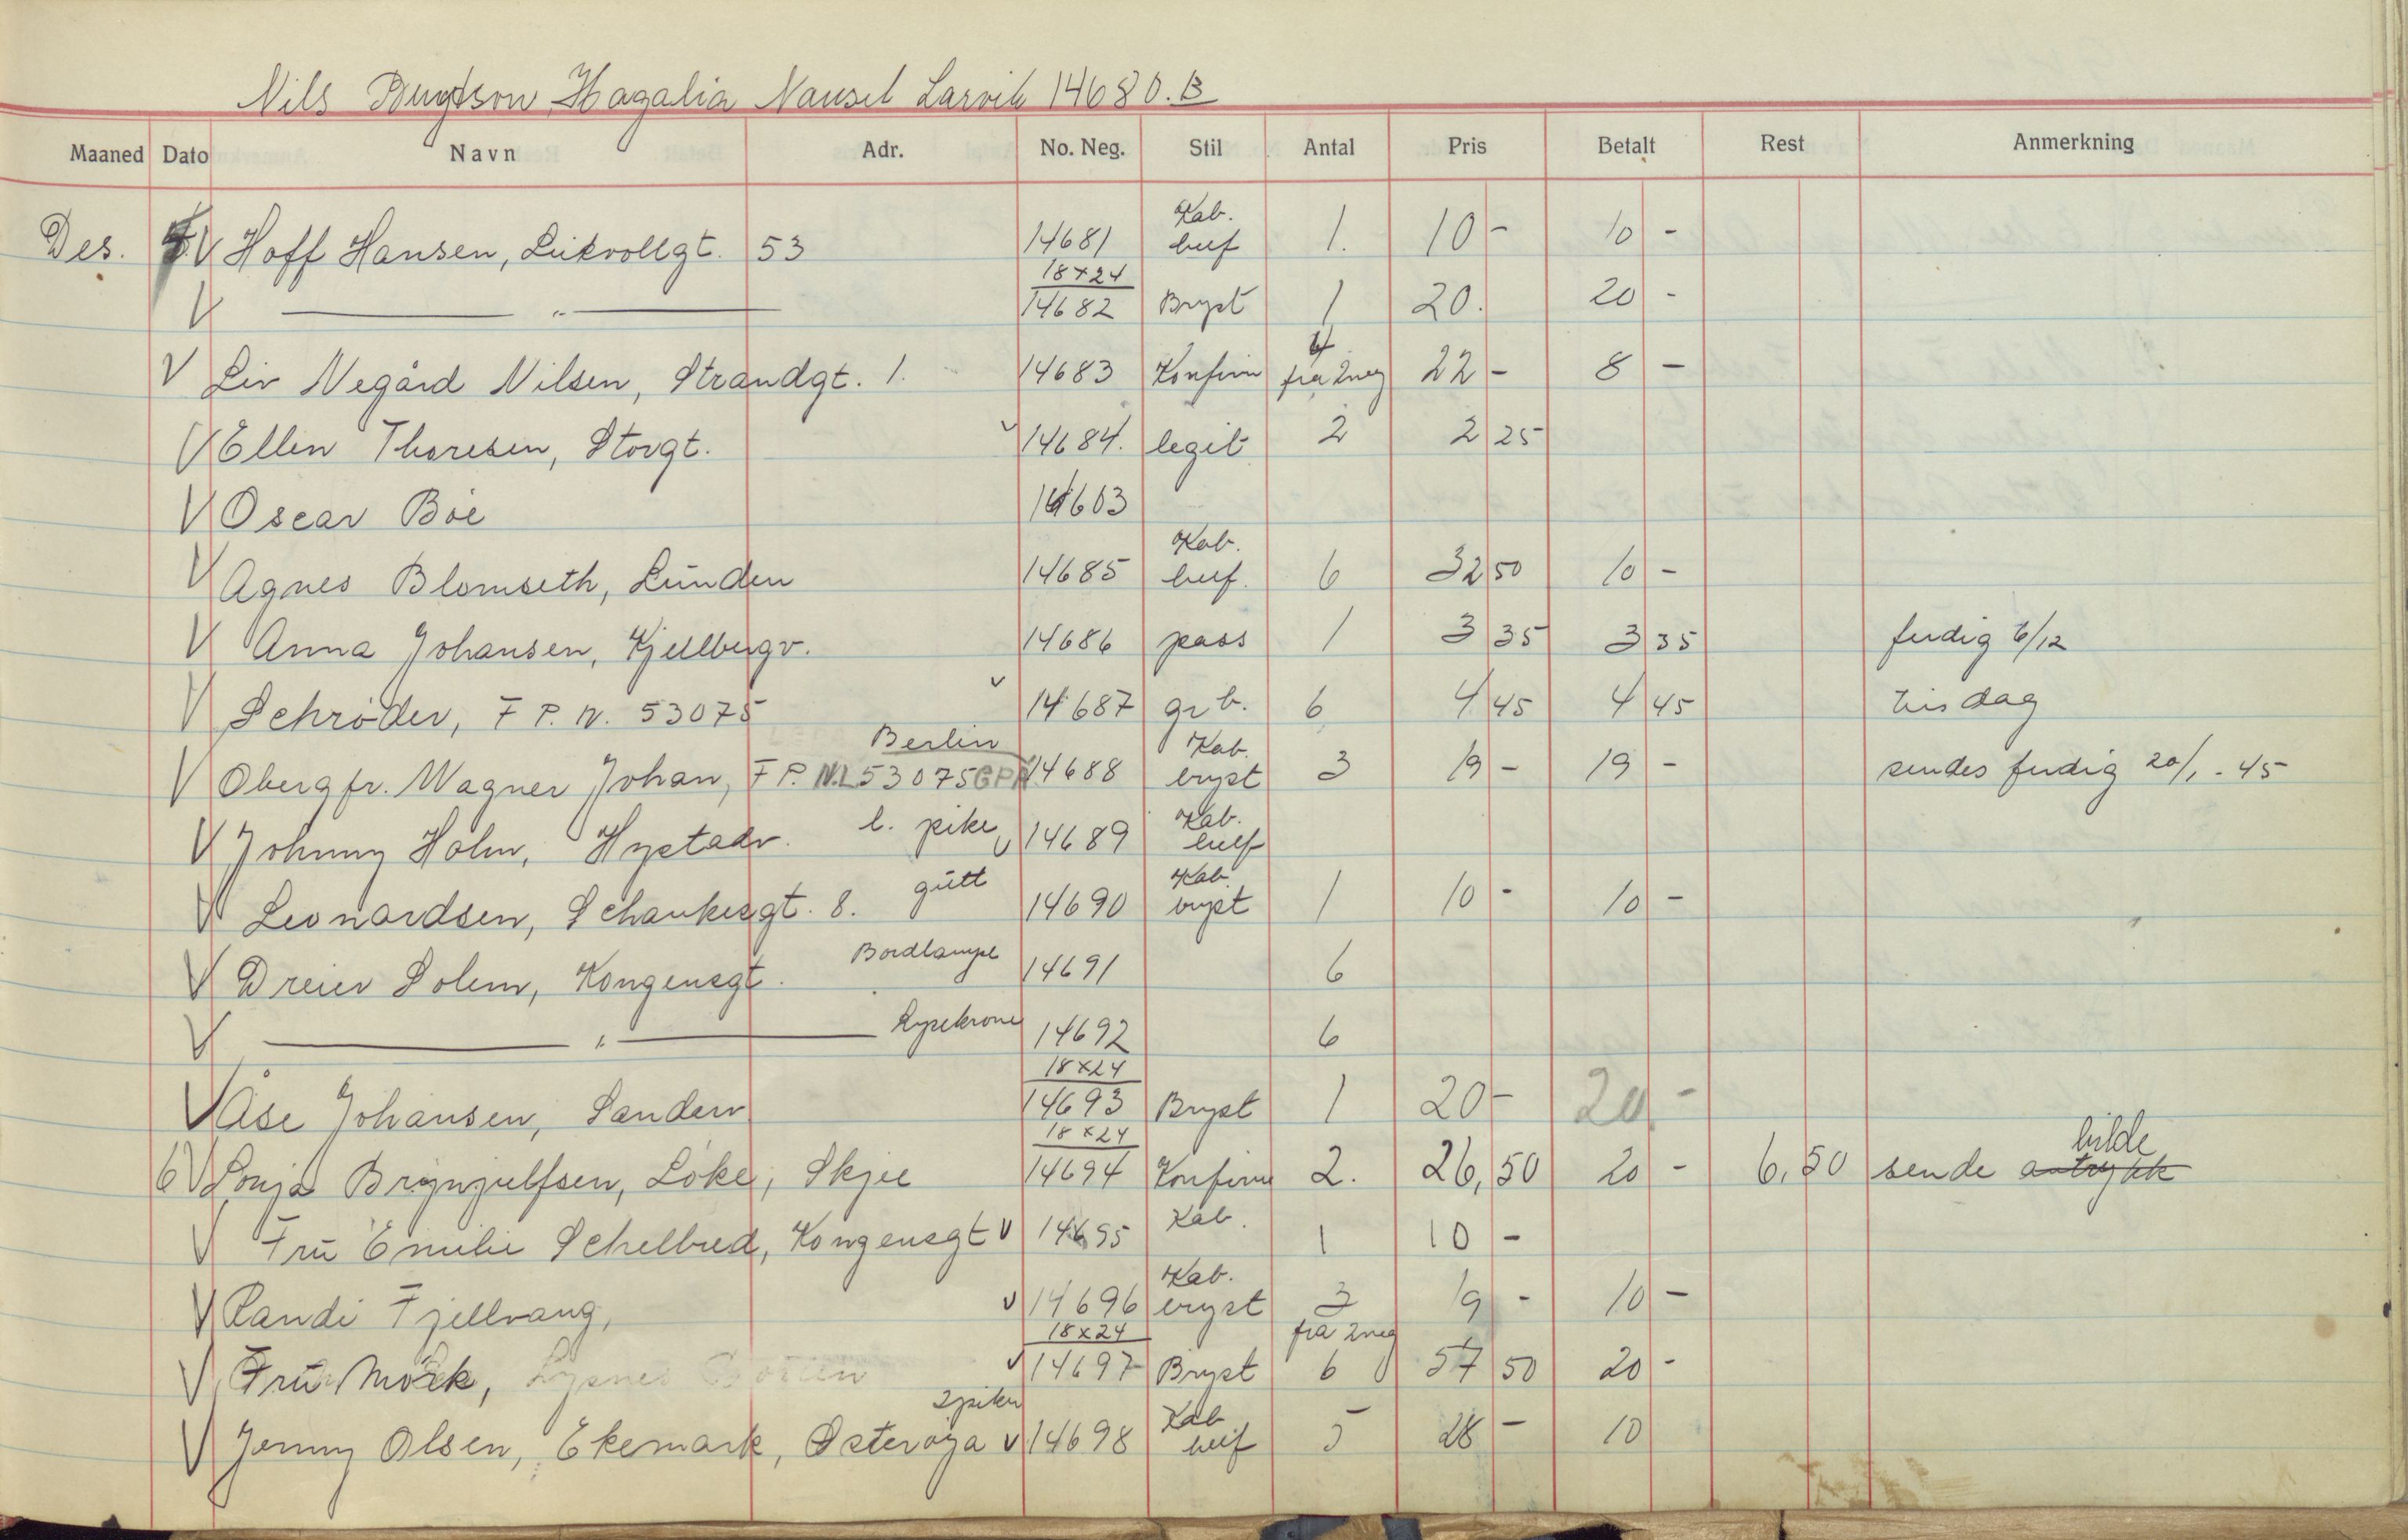 Nils Bugtson Hagalia Nansel Larvik 14680.B
Maaned Dato Navn Adr. No. Neg. Stil Antal Pris Betalt Rest Anmerkning
Kab.
Des. V Hoff Hansen, Lükvollgt. 53 14681 1. 10 - 10 -
18x24
V — " — 14682 Bryst 1 20. 20 -
4
V Liv Negård Nilsen, Strandgt. 1. 14683 Konfirm fra 2neg 22 - 8 -
V Ellen Thoresen, Storgt. v 14684. legit 2 2 25
V Oscar Böe 14603
Kab.
V Agnes Blomseth, Lünden 14685 6 32 50 10 -
V Anna Johansen, Kjellbergv. 14686 pass 1 3 35 3 35 ferdig 6/12
V Schröder, F P. N. 53075 v 14687 grb. 6 4 45 4 45 tirsdag
Berlin Kab.
V Obergfr. Wagner Johan, F P. N.L 53075 GPA 14688 bryst 3 19 - 19 - sendes ferdig 20/1 - 45
l. pike Kab.
V Johnny Holm, Hystadv. v 14689
gütt Kab.
V Leonardsen, Schankesgt. 8. 14690 bryst 1 10 - 10 -
Bordlampe
V Dreier Solem, Kongensgt. 14691 6
V — " — Lysekrone 14692 6
18x24
V Åse Johansen, Landerv 14693 Bryst 1 20 - 20 -
18x24 bilde
6 V Sonja Brynjulfsen, Löke, Skjee 14694 Konfirm 2. 26,50 20 - 6,50 sende avtrykk
V Frü Emilie Schelbred, Kongensgt v 14695 Kab. 1 10 -
Kab.
V Randi Fjellvang, v 14696 bryst 3 19 - 10 -
18x24 fra 2neg
V Frü Mörk, v 14697 Bryst 6 57 50 20 -
2 piker Kab
V Jenny Olsen, Ekemark, Østerøya v 14698 5 28 - 10